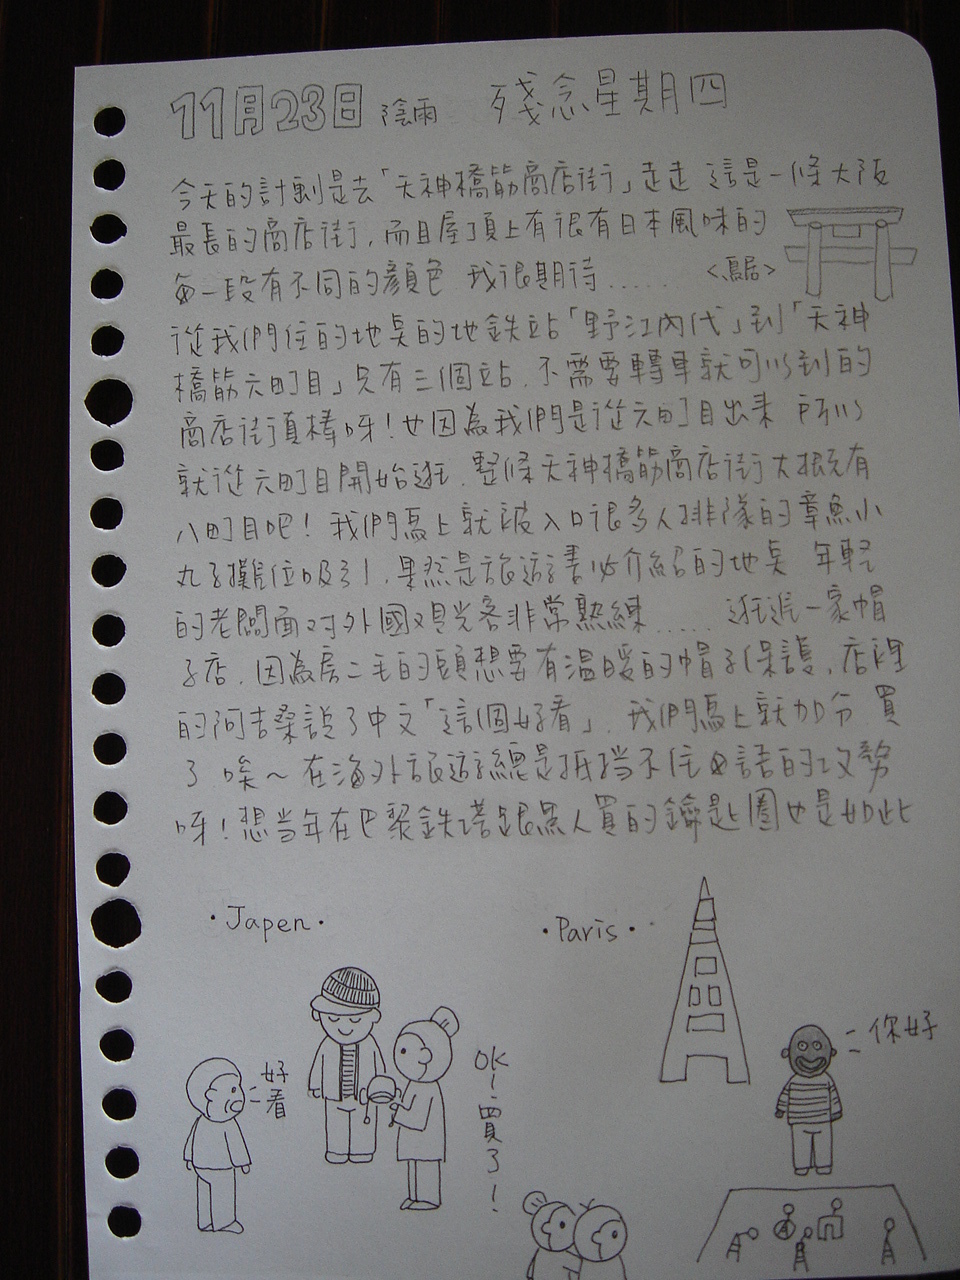 11月23日 陰雨 殘念星期四
今天的計劃是去「天神橋筋商店街」走走 這是一條大阪
最長的商店街,而且屋頂上有很有日本風味的
每一段有不同的顏色 我很期待...... <鳥居>
從我們住的地点的地鉄站「野江內代」到「天神
橋筋六町目」只有三個站.不需要轉車就可以到的
商店街真棒呀!也因為我們是從六町目出來 所以
就從六町目開始逛.整條天神橋筋商店街大概有
八町目吧!我們馬上就被入口很多人排隊的章魚小
丸子攤位吸引,果然是旅遊書必介紹的地点 年輕
的老闆面对外國观光客非常熟練..... 逛進一家帽
子店.因為房二毛的頭想要有溫暖的帽子保護,店裡
的阿吉桑說了中文「這個好看」.我們馬上就加分 買
了 唉～在海外旅遊總是抵挡不住母語的攻勢
呀!想当年在巴黎鉄塔跟黑人買的鑰匙圈也是如此
·Japen·
·Paris·
你好
好看
OK!買了!